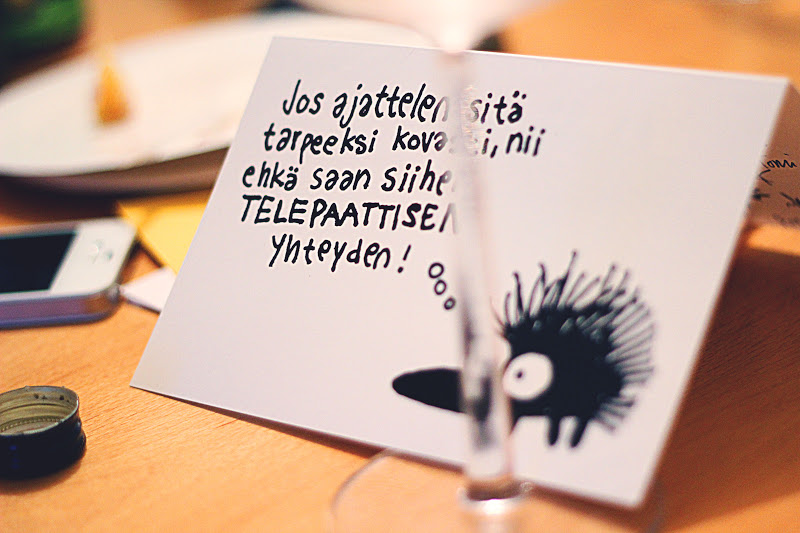 Jos ajattelen sitä
tarpeeksi kovasti, nii
ehkä saan siihen
TELEPAATTISEN
yhteyden!